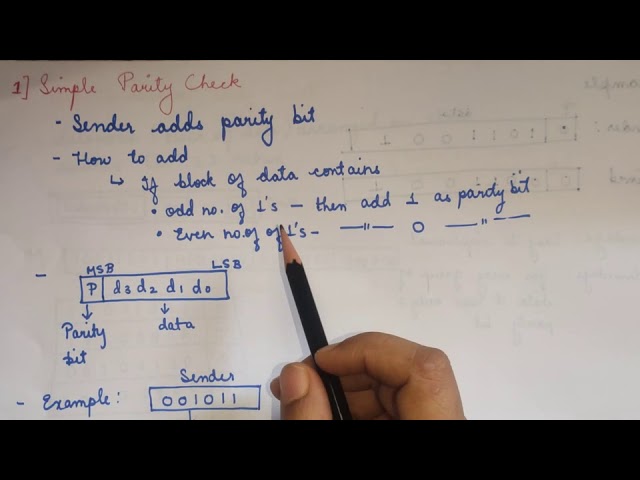 1] Simple Parity Check
- Sender adds parity bit
- How to add
↳ If block of data contains
• odd no. of 1's – then add 1 as parity bit
• Even no. of of 1's – —"— 0 —"—
MSB LSB
- P d3 d2 d1 d0
Parity bit
data
Sender
- Example: 001011